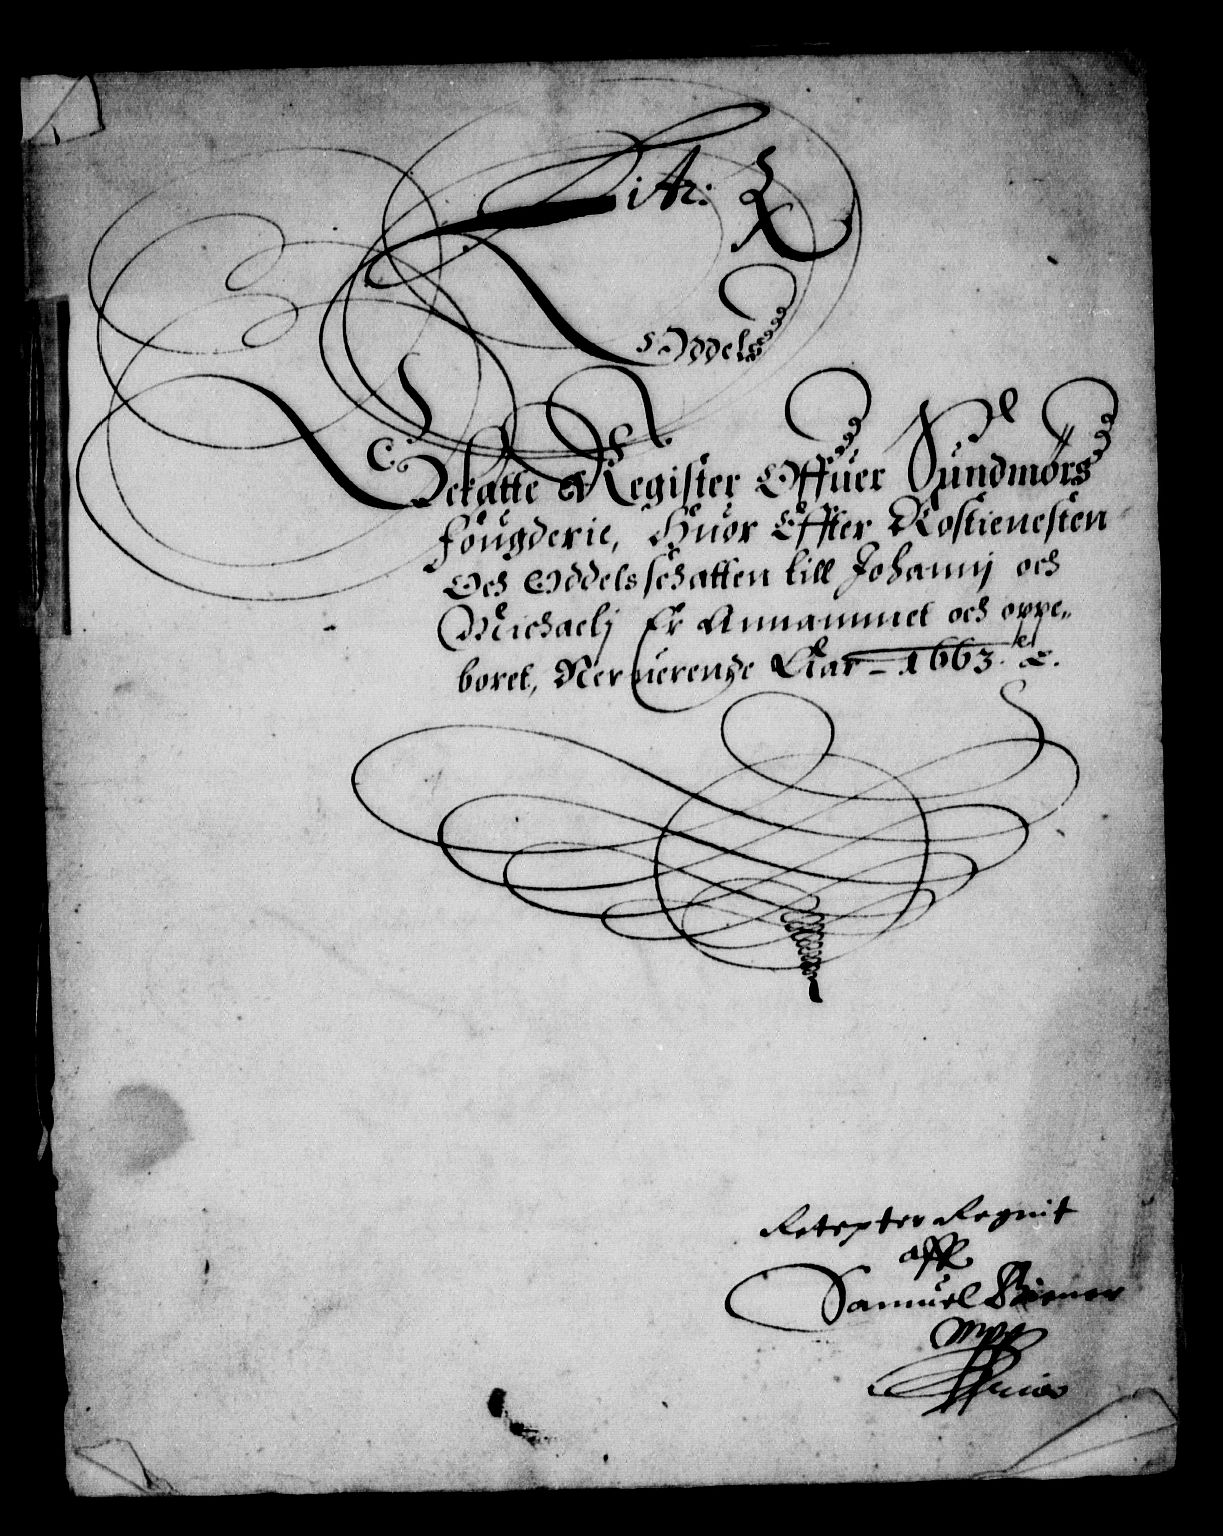 Litr: X
Oddels
Schatte Register Offuer Sundmørs
fougderie, Huor Effter Rostienesten
Och Oddels schatten till Johannj och
Michaelj Er Annammet och oppe„
boret, Neruerende Aar – 1663 &c.
aff
Samuel
mpp